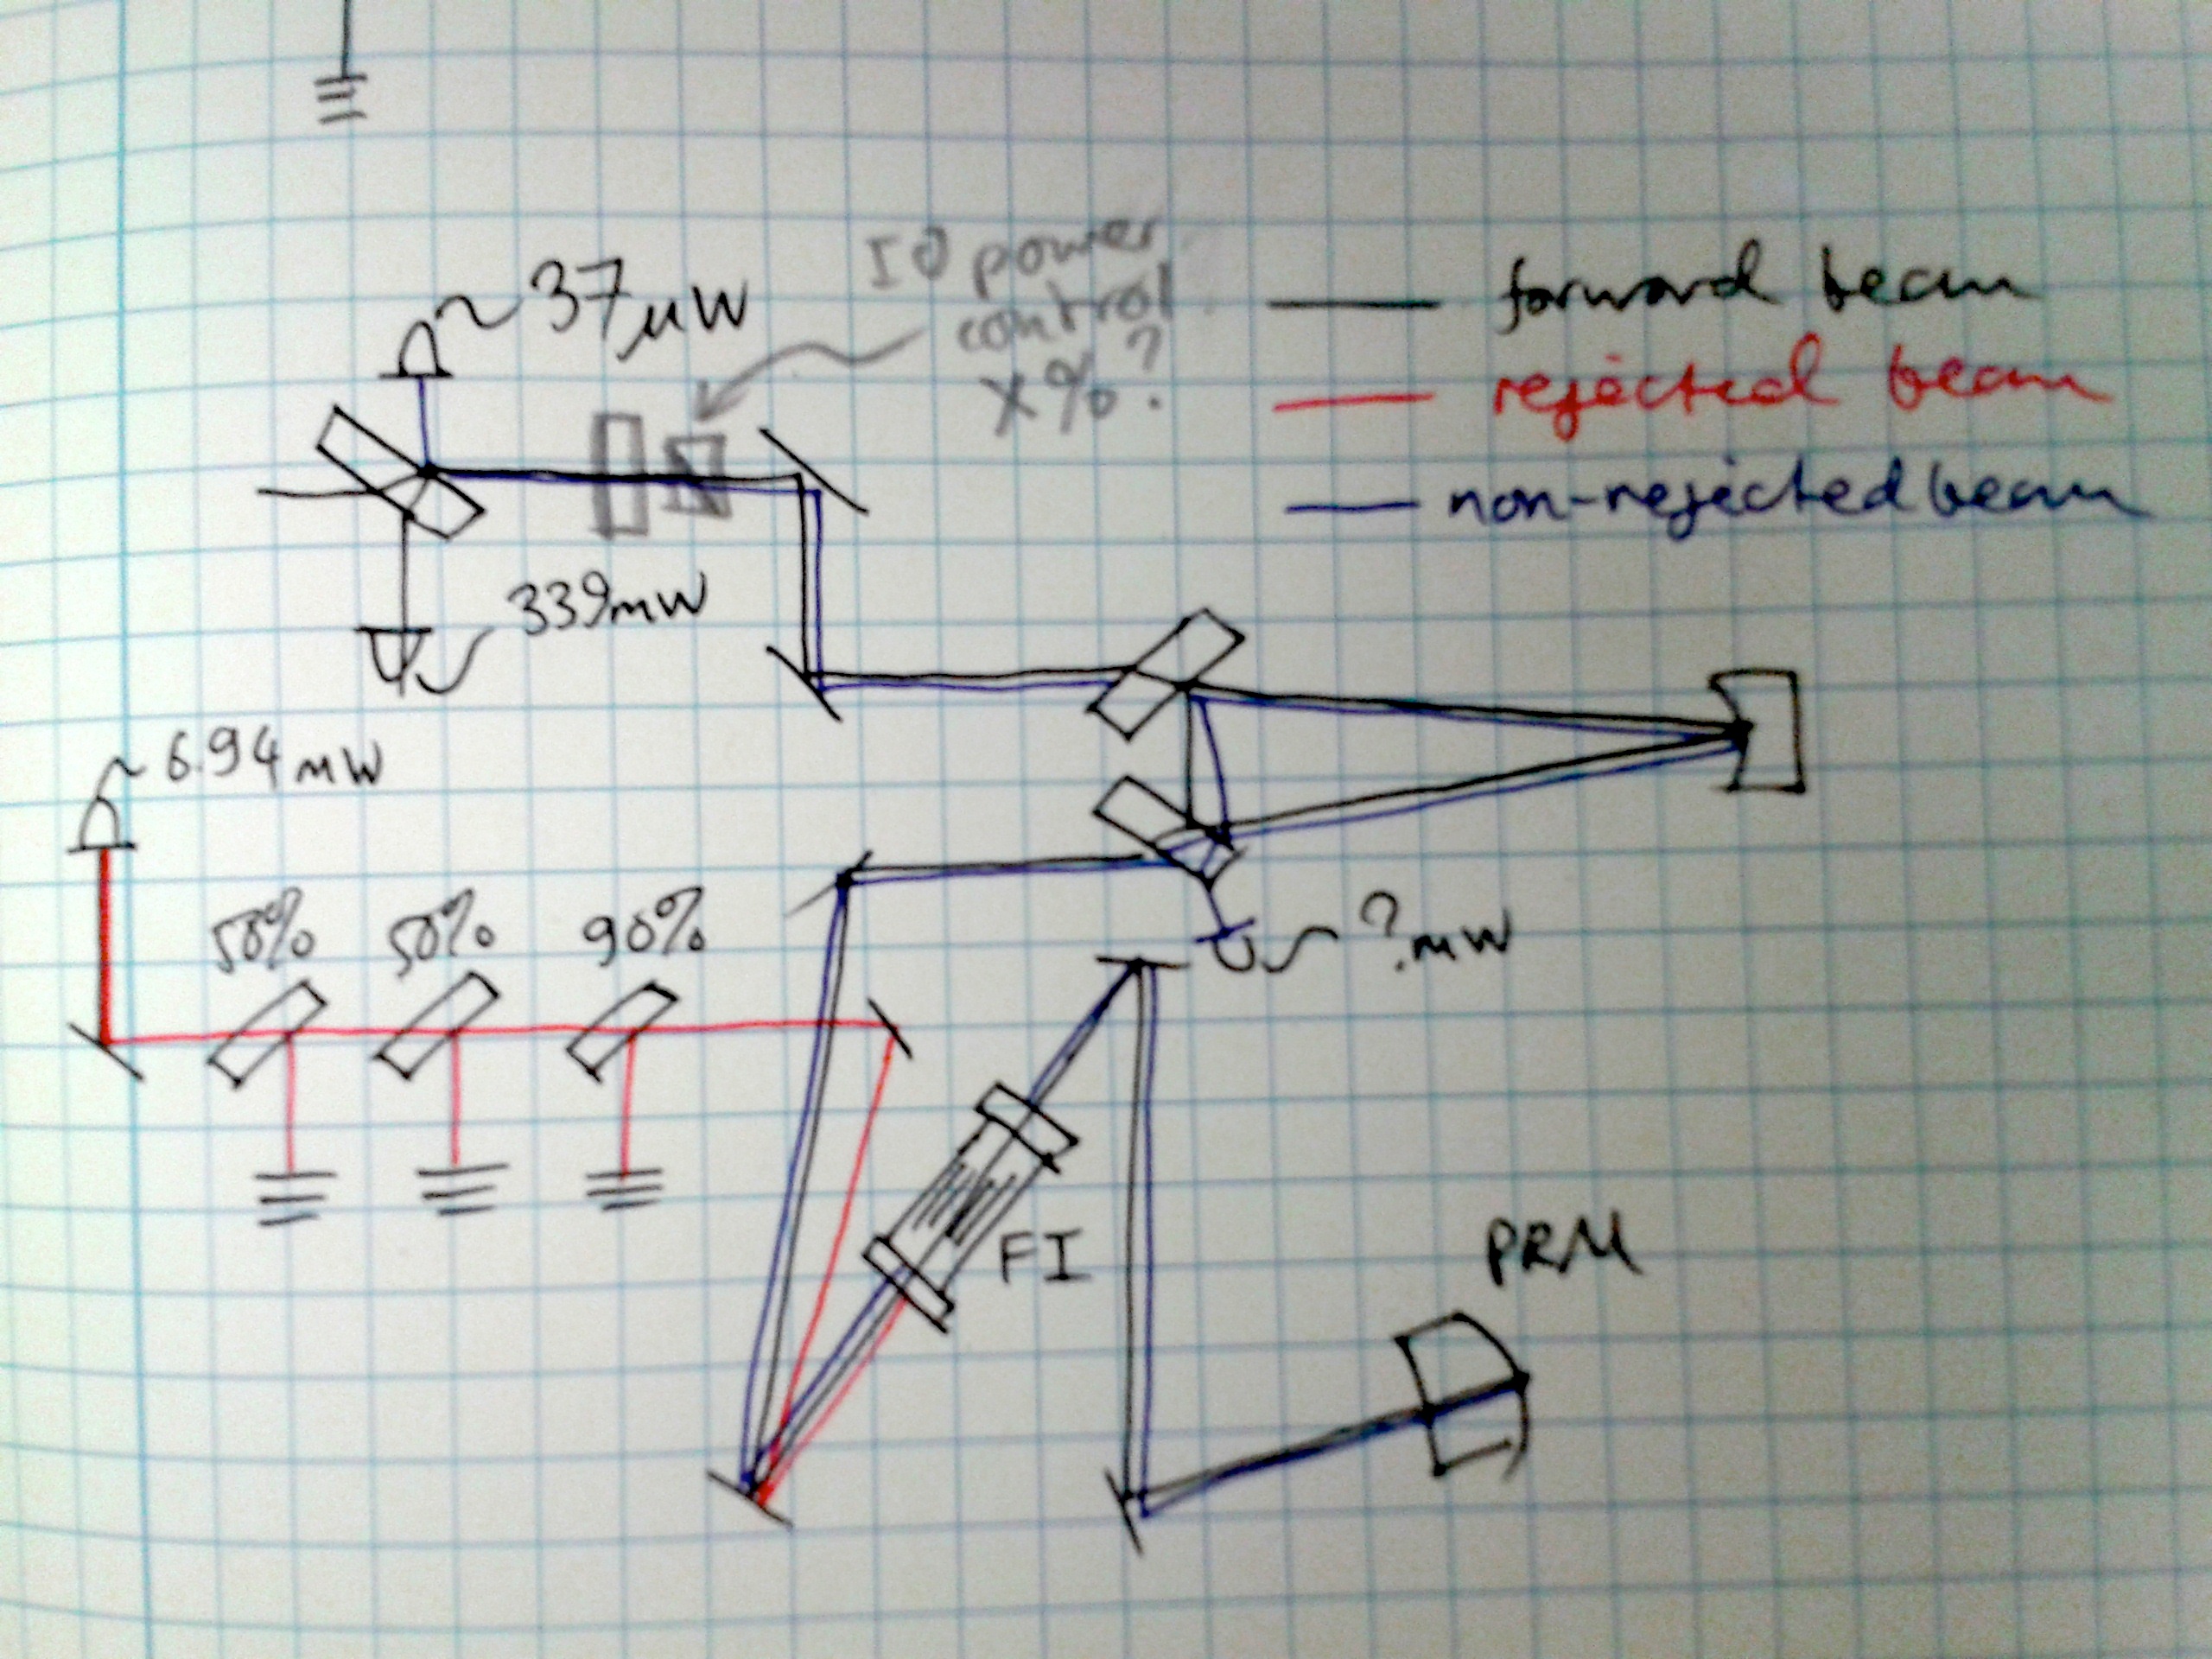 IO power
control
X%?
~37μW
forward beam
rejected beam
non-rejected beam
339mW
~6.94mW
50%
50%
90%
?mW
FI
PRM